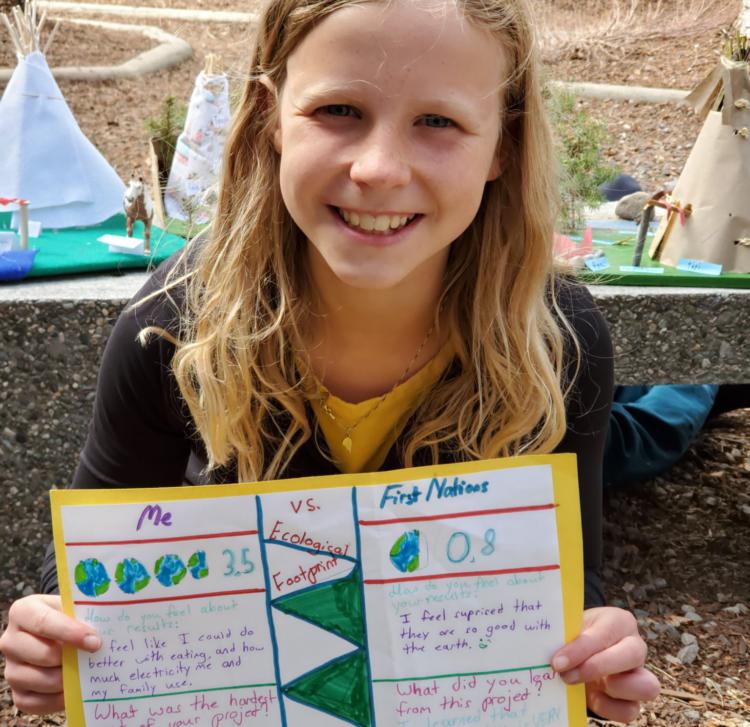 Me
3.5
How do you feel about
your results:
I feel like I could do
better with eating, and how
much electricity me and
my family use.
What was the hardest
of your project?
vs.
Ecological
Footprint
First Nations
0.8
How do you feel about
your results:
I feel supprised that
they are so good with
the earth.
What did you lear
from this project?
I learned that VERY